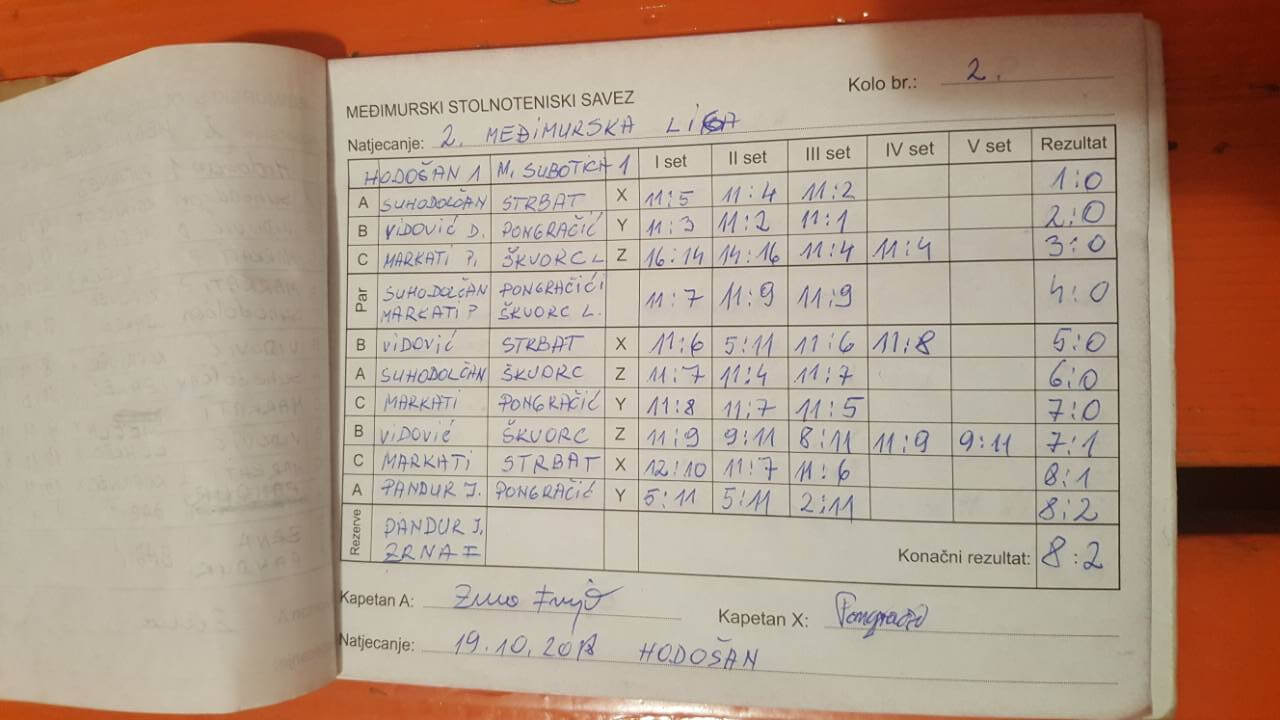 Kolo br.: 2.
MEĐIMURSKI STOLNOTENISKI SAVEZ
Natjecanje: 2. MEĐIMURSKA LIGA
HODOŠAN 1 M. SUBOTICA 1 I set II set III set IV set V set Rezultat
A SUHODOLČAN STRBAT X 11:5 11:4 11:2 1:0
B VIDOVIĆ D. PONGRAČIĆ Y 11:3 11:2 11:1 2:0
C MARKATI P. ŠKVORC L Z 16:14 14:16 11:4 11:4 3:0
Par SUHODOLČAN PONGRAČIĆ 11:7 11:9 11:9 4:0
MARKATI P ŠKVORC L.
B VIDOVIĆ STRBAT X 11:6 5:11 11:6 11:8 5:0
A SUHODOLČAN ŠKVORC Z 11:7 11:4 11:7 6:0
C MARKATI PONGRAČIĆ Y 11:8 11:7 11:5 7:0
B VIDOVIĆ ŠKVORC Z 11:9 9:11 8:11 11:9 9:11 7:1
C MARKATI STRBAT X 12:10 11:7 11:6 8:1
A PANDUR J. PONGRAČIĆ Y 5:11 5:11 2:11 8:2
Rezerve PANDUR J.
ZRNA I
Konačni rezultat: 8:2
Kapetan A:
Kapetan X: Pongračić
Natjecanje: 19.10.2018 HODOŠAN